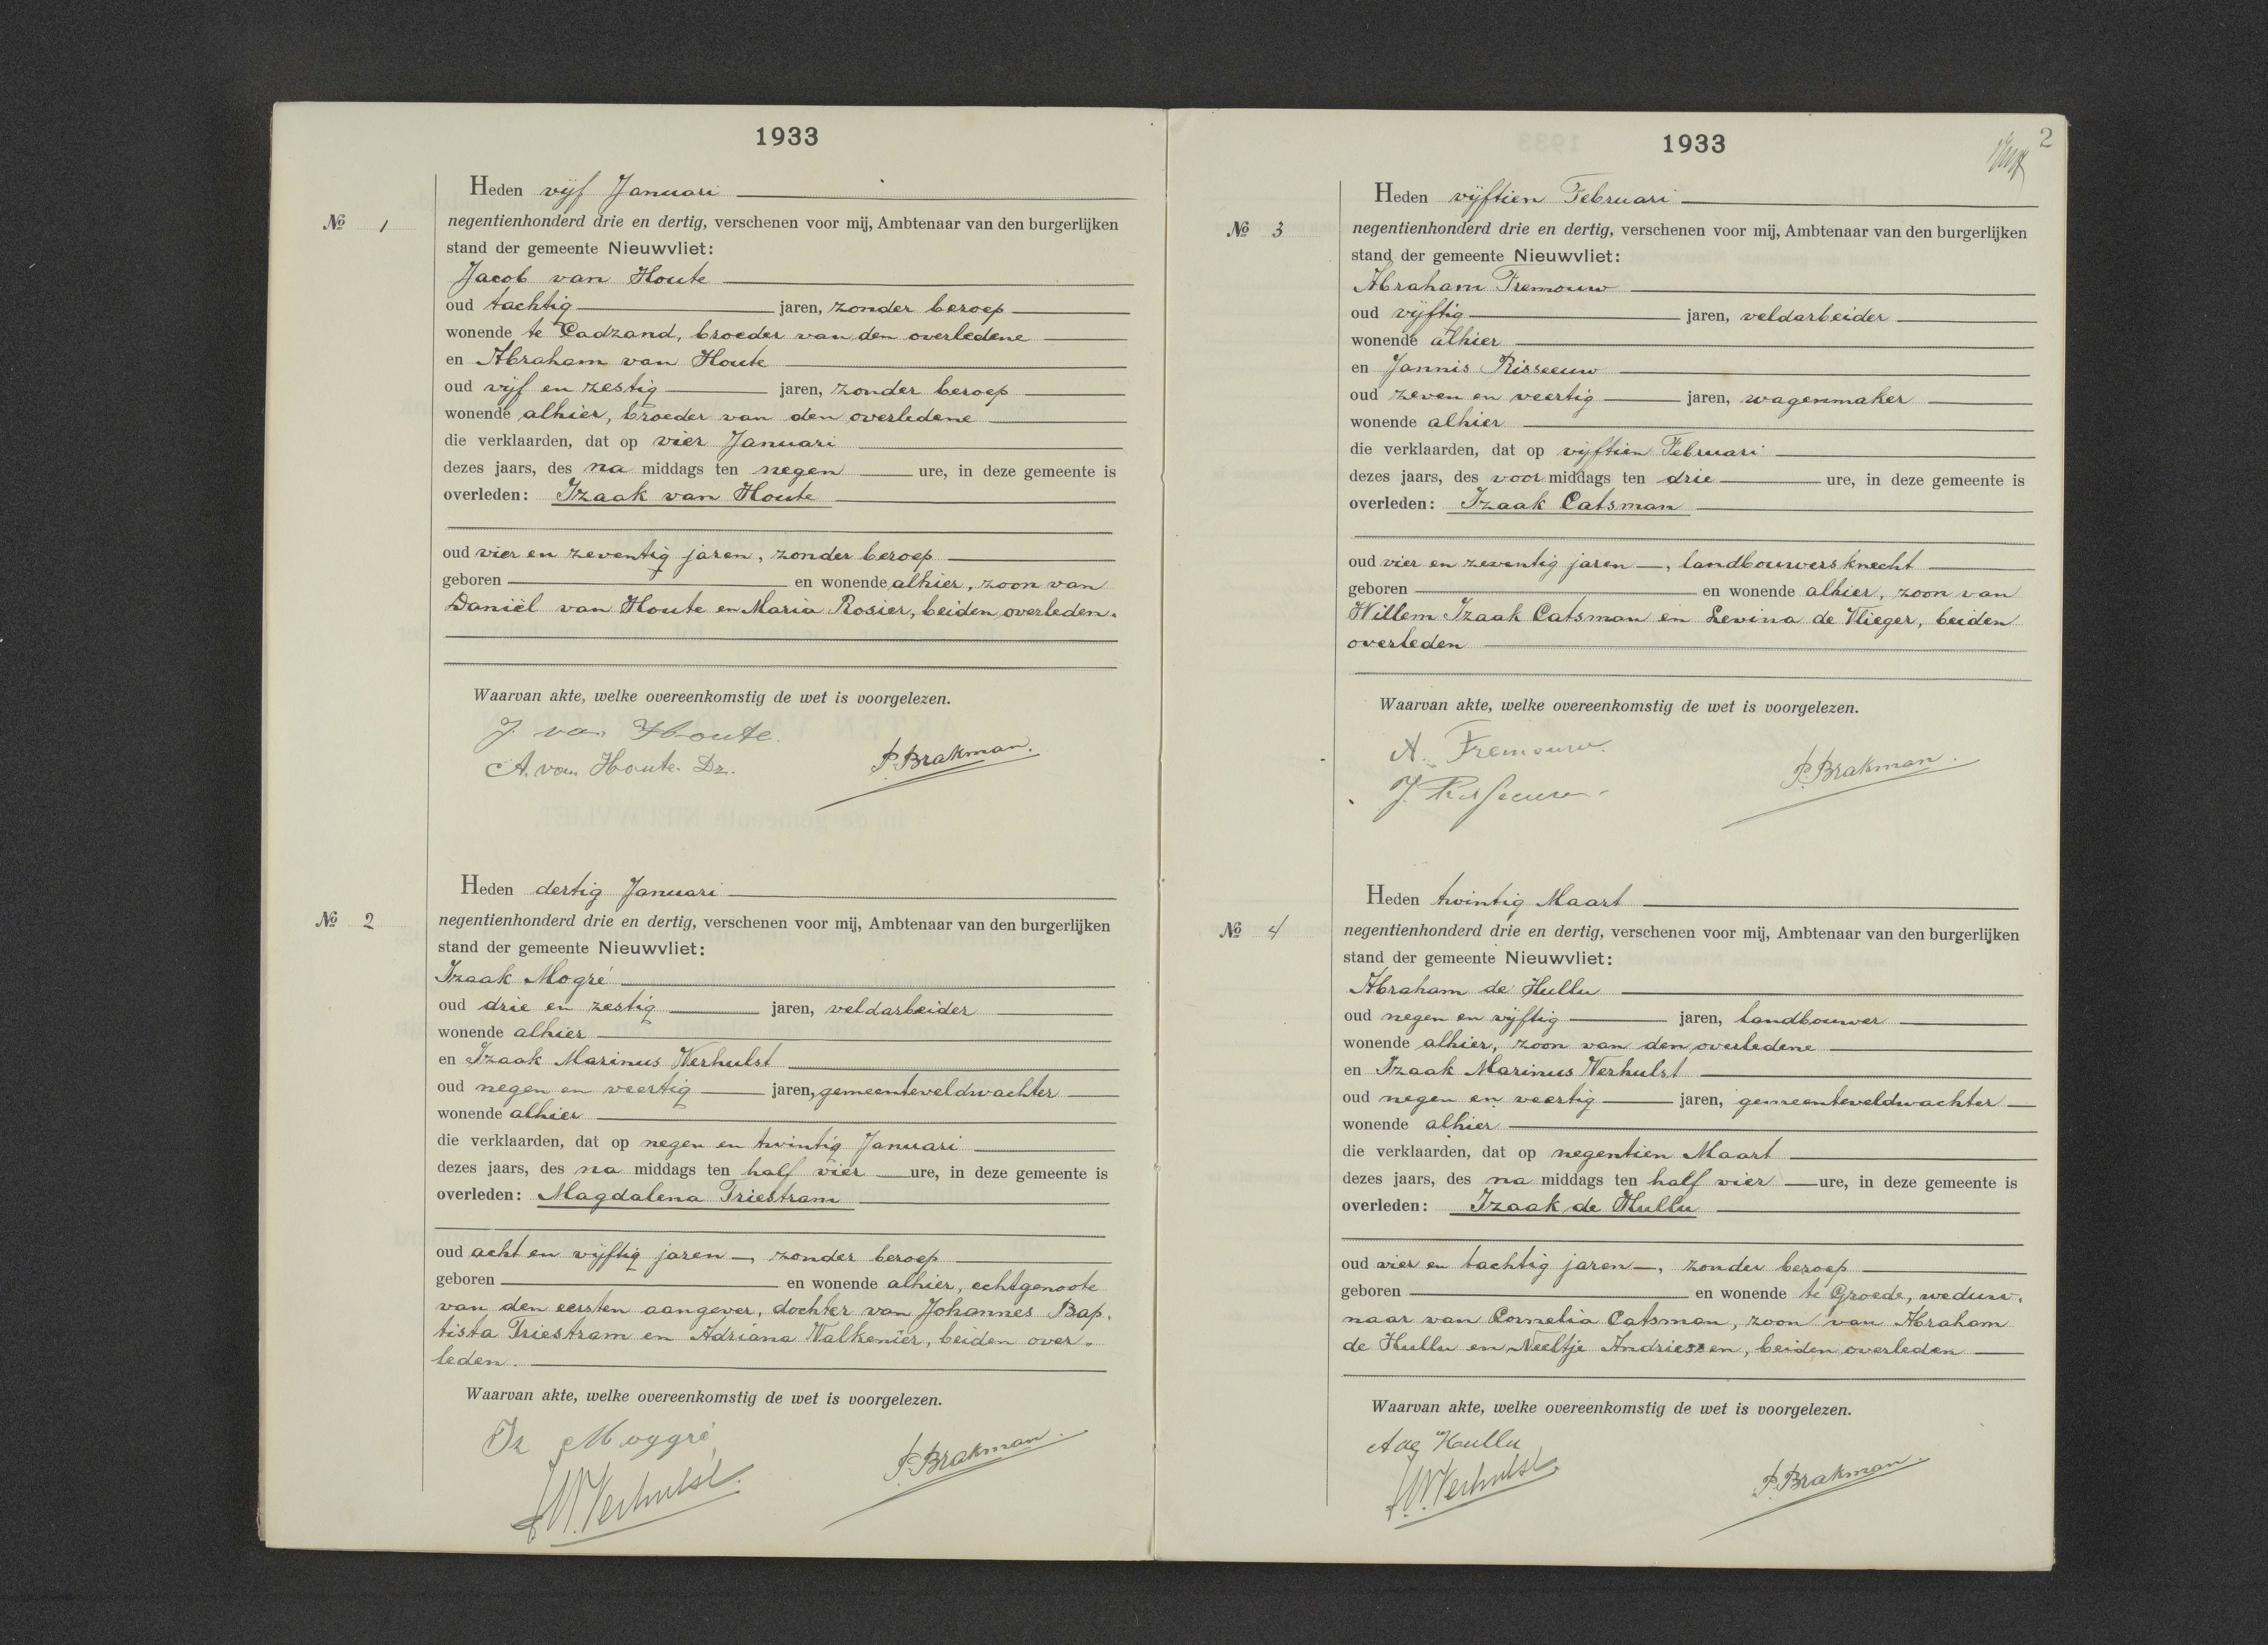 1933
Heden vijf Januari
No 1
negentienhonderd drie en dertig, verschenen voor mij, Ambtenaar van den burgerlijken
stand der gemeente Nieuwvliet:
Jacob van Houte
oud tachtig jaren, zonder beroep
wonende te Cadzand, broeder van den overledene
en Abraham van Houte
oud vijf en zestig jaren, zonder beroep
wonende alhier, broeder van den overledene
die verklaarden, dat op vier Januari
dezes jaars, des na middags ten negen ure, in deze gemeente is
overleden: Izaak van Houte
oud vier en zeventig jaren, zonder beroep
geboren en wonende alhier, zoon van
Daniël van Houte en Maria Rosier, beiden overleden.
Waarvan akte, welke overeenkomstig de wet is voorgelezen.
J. van Houte.
A. van Houte. Dz.
P. Brakman.
Heden dertig Januari
No 2
negentienhonderd drie en dertig, verschenen voor mij, Ambtenaar van den burgerlijken
stand der gemeente Nieuwvliet:
Izaak Mogré
oud drie en zestig jaren, veldarbeider
wonende alhier
en Izaak Marinus Verhulst
oud negen en veertig jaren, gemeenteveldwachter
wonende alhier
die verklaarden, dat op negen en twintig Januari
dezes jaars, des na middags ten half vier ure, in deze gemeente is
overleden: Magdalena Triestram
oud acht en vijftig jaren, zonder beroep
geboren en wonende alhier, echtgenoote
van den eersten aangever, dochter van Johannes Bap-
tista Triestram en Adriana Valkenier, beiden over-
leden.
Waarvan akte, welke overeenkomstig de wet is voorgelezen.
Iz Moggré
I.M. Verhulst.
P. Brakman.
1933
2
Heden vijftien Februari
No 3
negentienhonderd drie en dertig, verschenen voor mij, Ambtenaar van den burgerlijken
stand der gemeente Nieuwvliet:
Abraham Fremouw
oud vijftig jaren, veldarbeider
wonende alhier
en Jannis Risseeuw
oud zeven en veertig jaren, wagenmaker
wonende alhier
die verklaarden, dat op vijftien Februari
dezes jaars, des voor middags ten drie ure, in deze gemeente is
overleden: Izaak Catsman
oud vier en zeventig jaren, landbouwersknecht
geboren en wonende alhier, zoon van
Willem Izaak Catsman en Levina de Vlieger, beiden
overleden
Waarvan akte, welke overeenkomstig de wet is voorgelezen.
A. Fremouw.
J. Risseeuw
P. Brakman.
Heden twintig Maart
No 4
negentienhonderd drie en dertig, verschenen voor mij, Ambtenaar van den burgerlijken
stand der gemeente Nieuwvliet:
Abraham de Hullu
oud negen en vijftig jaren, landbouwer
wonende alhier, zoon van den overledene
en Izaak Marinus Verhulst
oud negen en veertig jaren, gemeenteveldwachter
wonende alhier
die verklaarden, dat op negentien Maart
dezes jaars, des na middags ten half vier ure, in deze gemeente is
overleden: Izaak de Hullu
oud vier en tachtig jaren, zonder beroep
geboren en wonende te Groede, weduw-
naar van Cornelia Catsman, zoon van Abraham
de Hullu en Neeltje Andriessen, beiden overleden
Waarvan akte, welke overeenkomstig de wet is voorgelezen.
A de Hullu
I.M. Verhulst.
P. Brakman.